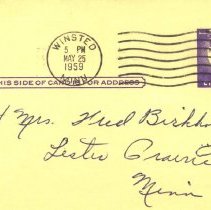 WINSTED
5 PM
MAY 25
1959
MINN.
THIS SIDE OF CARD IS FOR ADDRESS
Mrs.
Lester Prairie
Minn